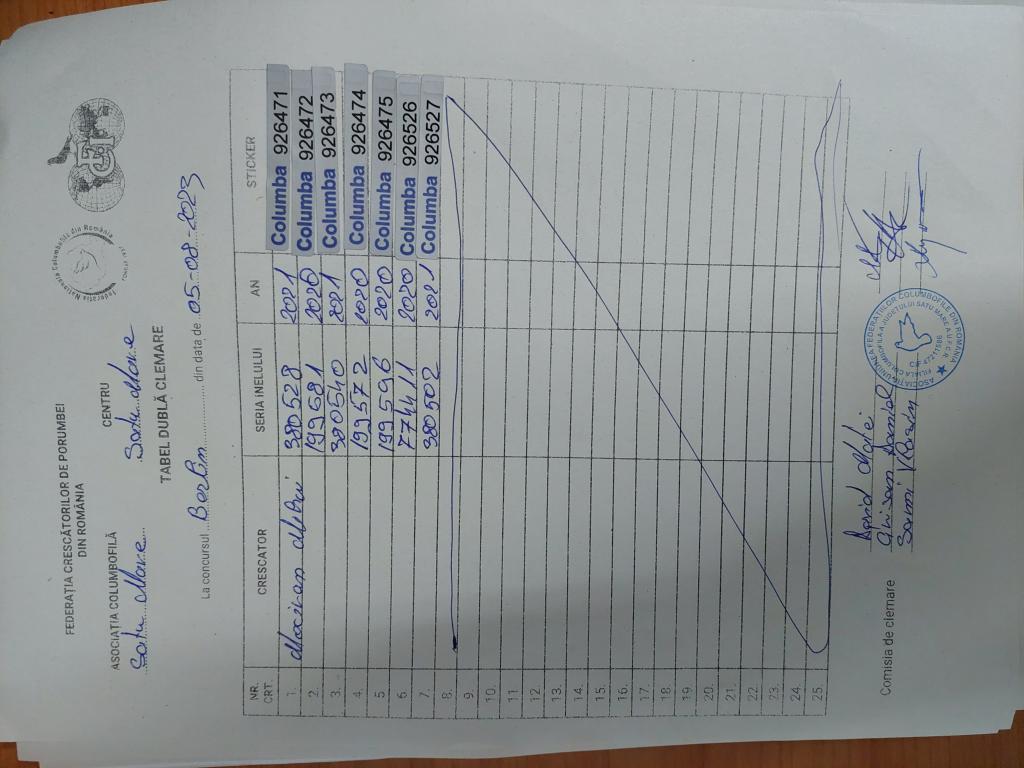 FEDERAȚIA CRESCĂTORILOR DE PORUMBEI
DIN ROMÂNIA
Federația Națională Columbofilă din România
ASOCIAȚIA COLUMBOFILĂ CENTRU
Satu Mare Satu Mare
TABEL DUBLĂ CLEMARE
La concursul Berlim din data de 05.08.2023
NR. CRT. CRESCATOR SERIA INELULUI AN STICKER
1. 380528 2021 Columba 926471
2. 199581 2020 Columba 926472
3. 380540 2021 Columba 926473
4. 199572 2020 Columba 926474
5 199596 2020 Columba 926475
6. 774411 2020 Columba 926526
7. 380502 2021 Columba 926527
8.
9.
10.
11
12.
13.
14.
15.
16.
17.
18.
19.
20.
21.
22.
23.
24.
25.
Comisia de clemare
David
Daniel